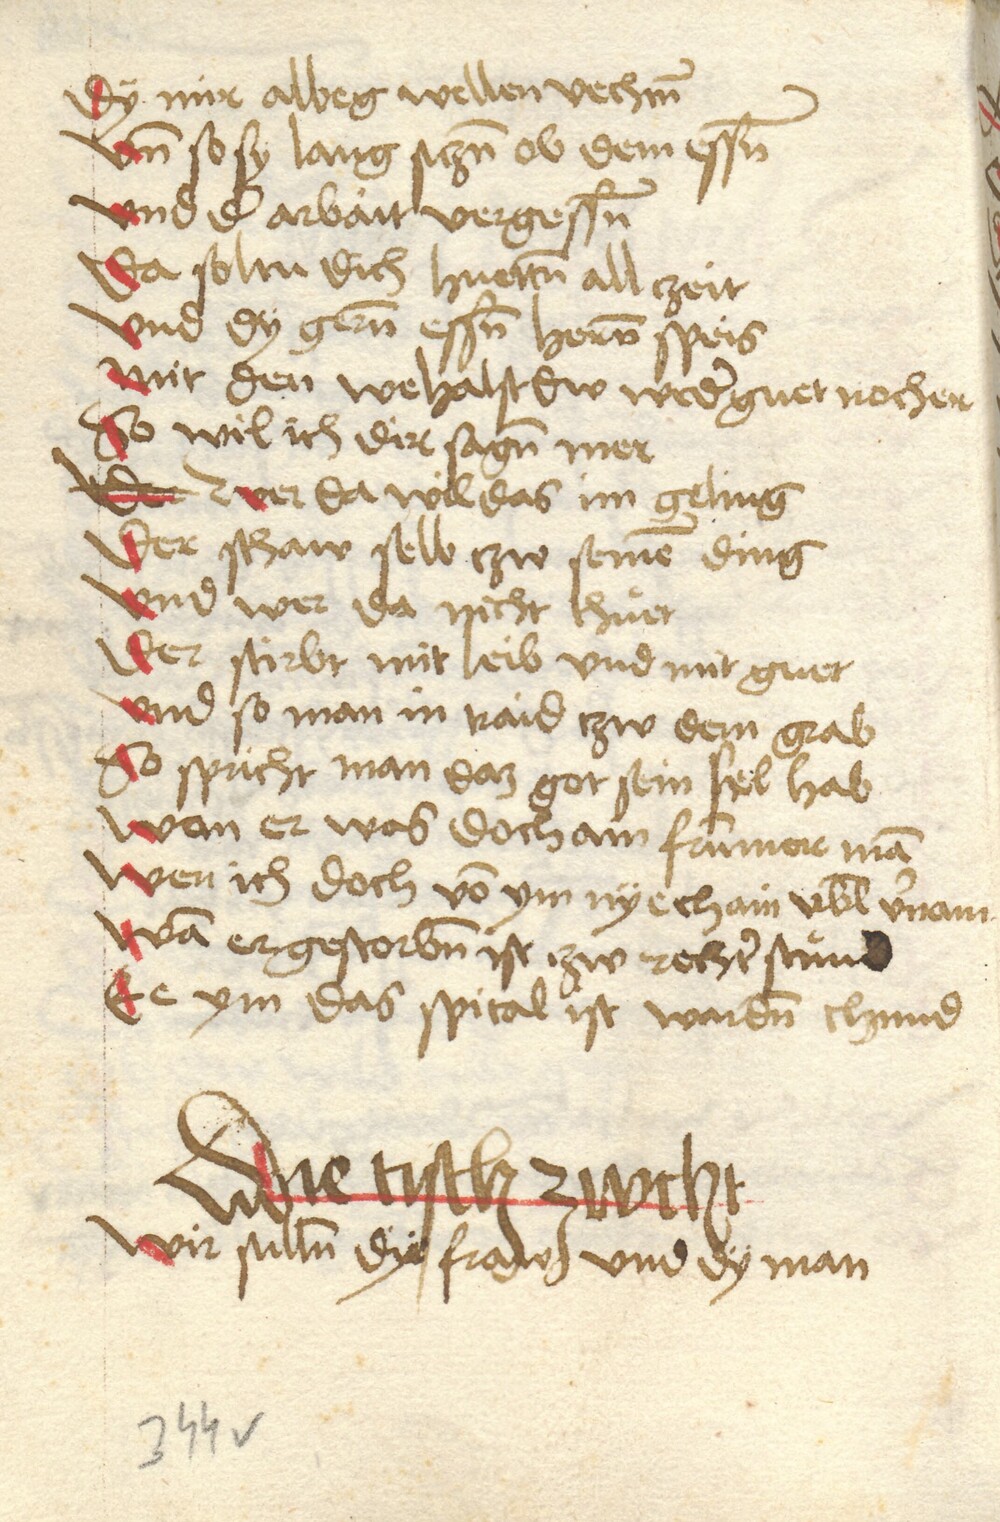 Dÿ mir albeg wellen vechtñ
Vnd̄ so sy lang siczn̄ ob dem essn̄
vnd d̓ arbait vergessn̄
Da soltu dich huettn̄ all czeit
Vnd dy gern̄ essn̄ herñ speis
Mit den wehalst dw wed̓ guet noch er
So wil ich dir sagn̄ mer
Wer da wil das im geling
Der schaw selb czw seinē ding
vnd wer da nicht thuet
Der stirbt mit leib vnd mit guet
vnd so man in traid czw dem grab
So spricht man daz got sein sel hab
Wan er was doch ain frumer mā
Wen ich doch võ ym nÿe chain vbl v̓nam
Wā er gestorbn̄ ist czw recht̓ stund
Ee ym das spital ist wardn̄ chund
Die tisch zwcht
Wir sulln̄ dÿe frawn vnd dÿ man
344v